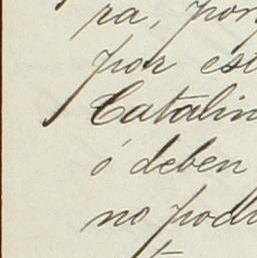 ra, por
por est
Catalin
ó deben
no pod